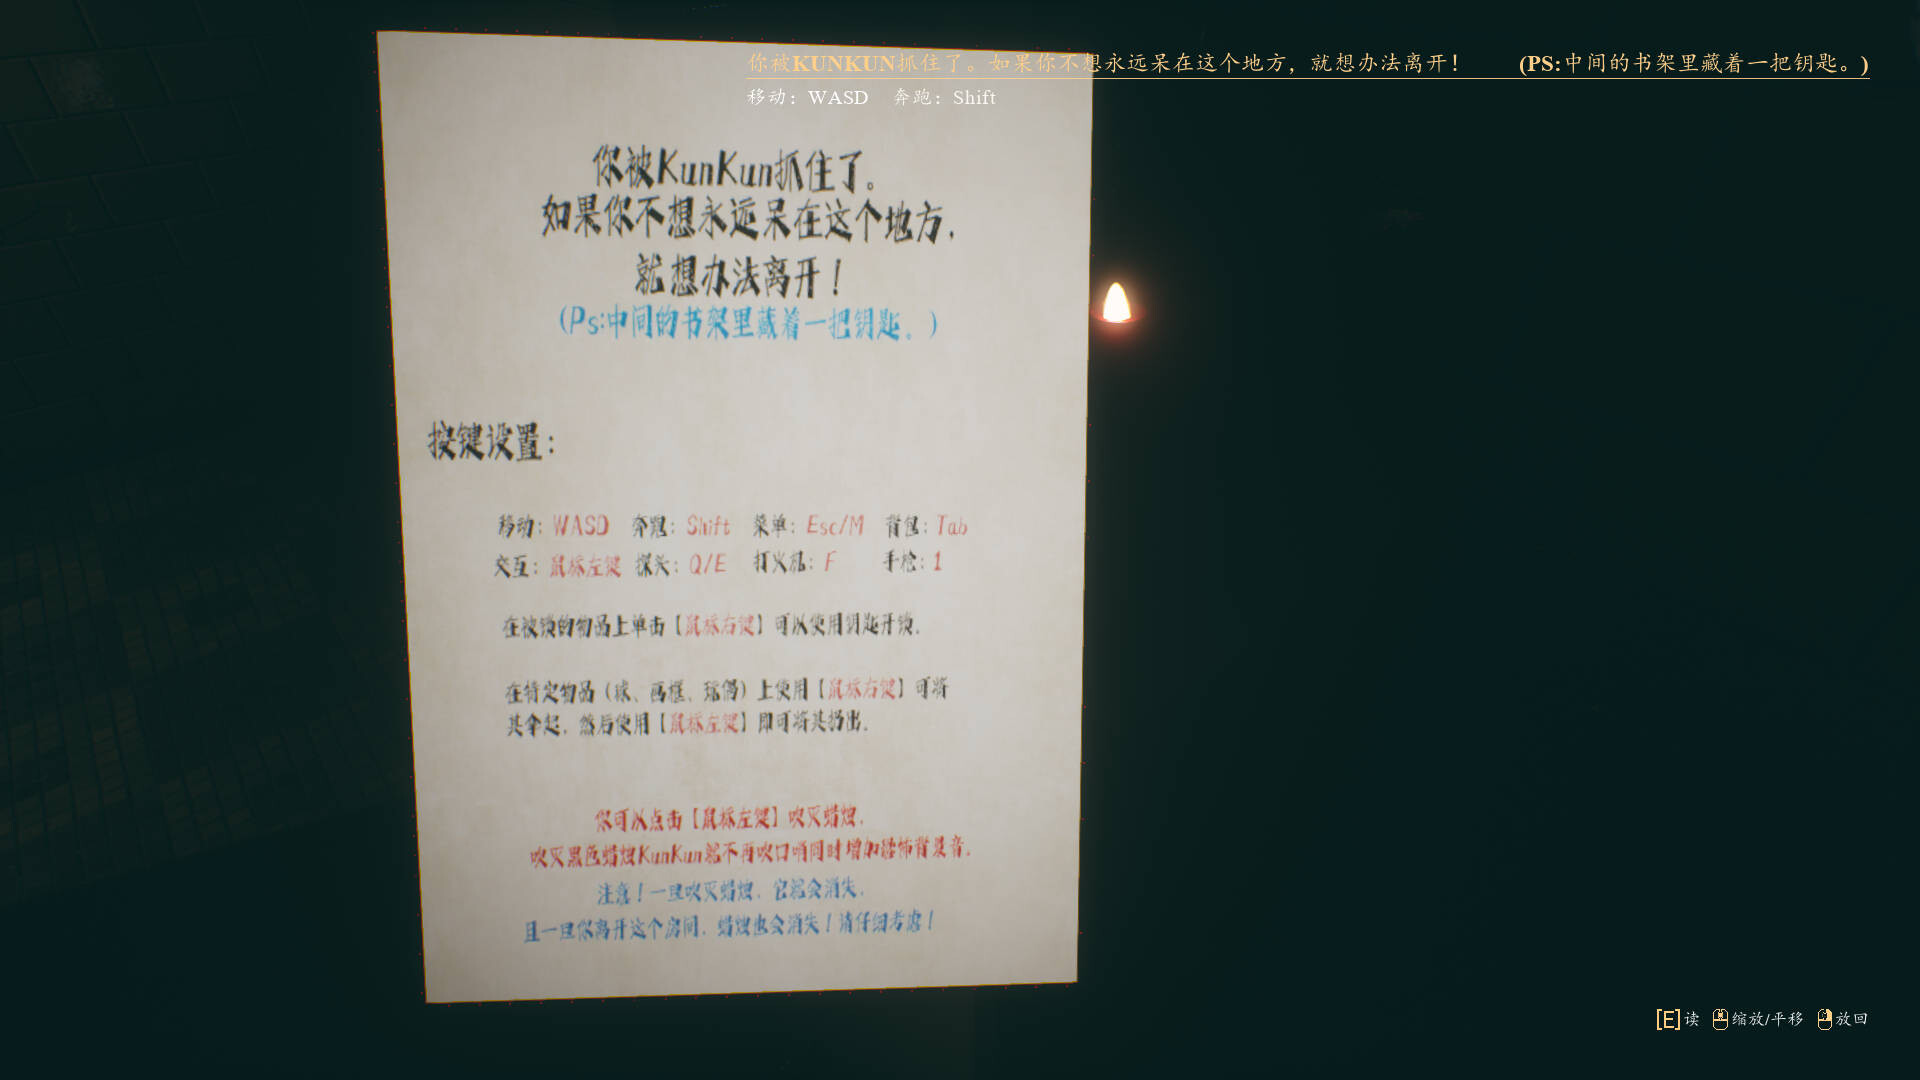 你被KUNKUN抓住了。如果你不想永远呆在这个地方，就想办法离开！ (PS:中间的书架里藏着一把钥匙。)
移动：WASD 奔跑：Shift
你被KunKun抓住了。
如果你不想永远呆在这个地方，
就想办法离开！
(Ps:中间的书架里藏着一把钥匙。)
按键设置：
移动：WASD 奔跑：Shift 菜单：Esc/M 背包：Tab
交互：鼠标左键 探头：Q/E 打火机：F 手枪：1
在被锁的物品上单击【鼠标右键】可以使用钥匙开锁。
在特定物品（球、画框、瑶偶）上使用【鼠标右键】可将
其拿起，然后使用【鼠标左键】即可将其扔出。
你可以点击【鼠标左键】吹灭蜡烛，
吹灭黑色蜡烛KunKun就不再吹口哨同时增加恐怖背景音。
注意！一旦吹灭蜡烛，它就会消失，
且一旦你离开这个房间，蜡烛也会消失！请仔细考虑！
[E]读 缩放/平移 放回